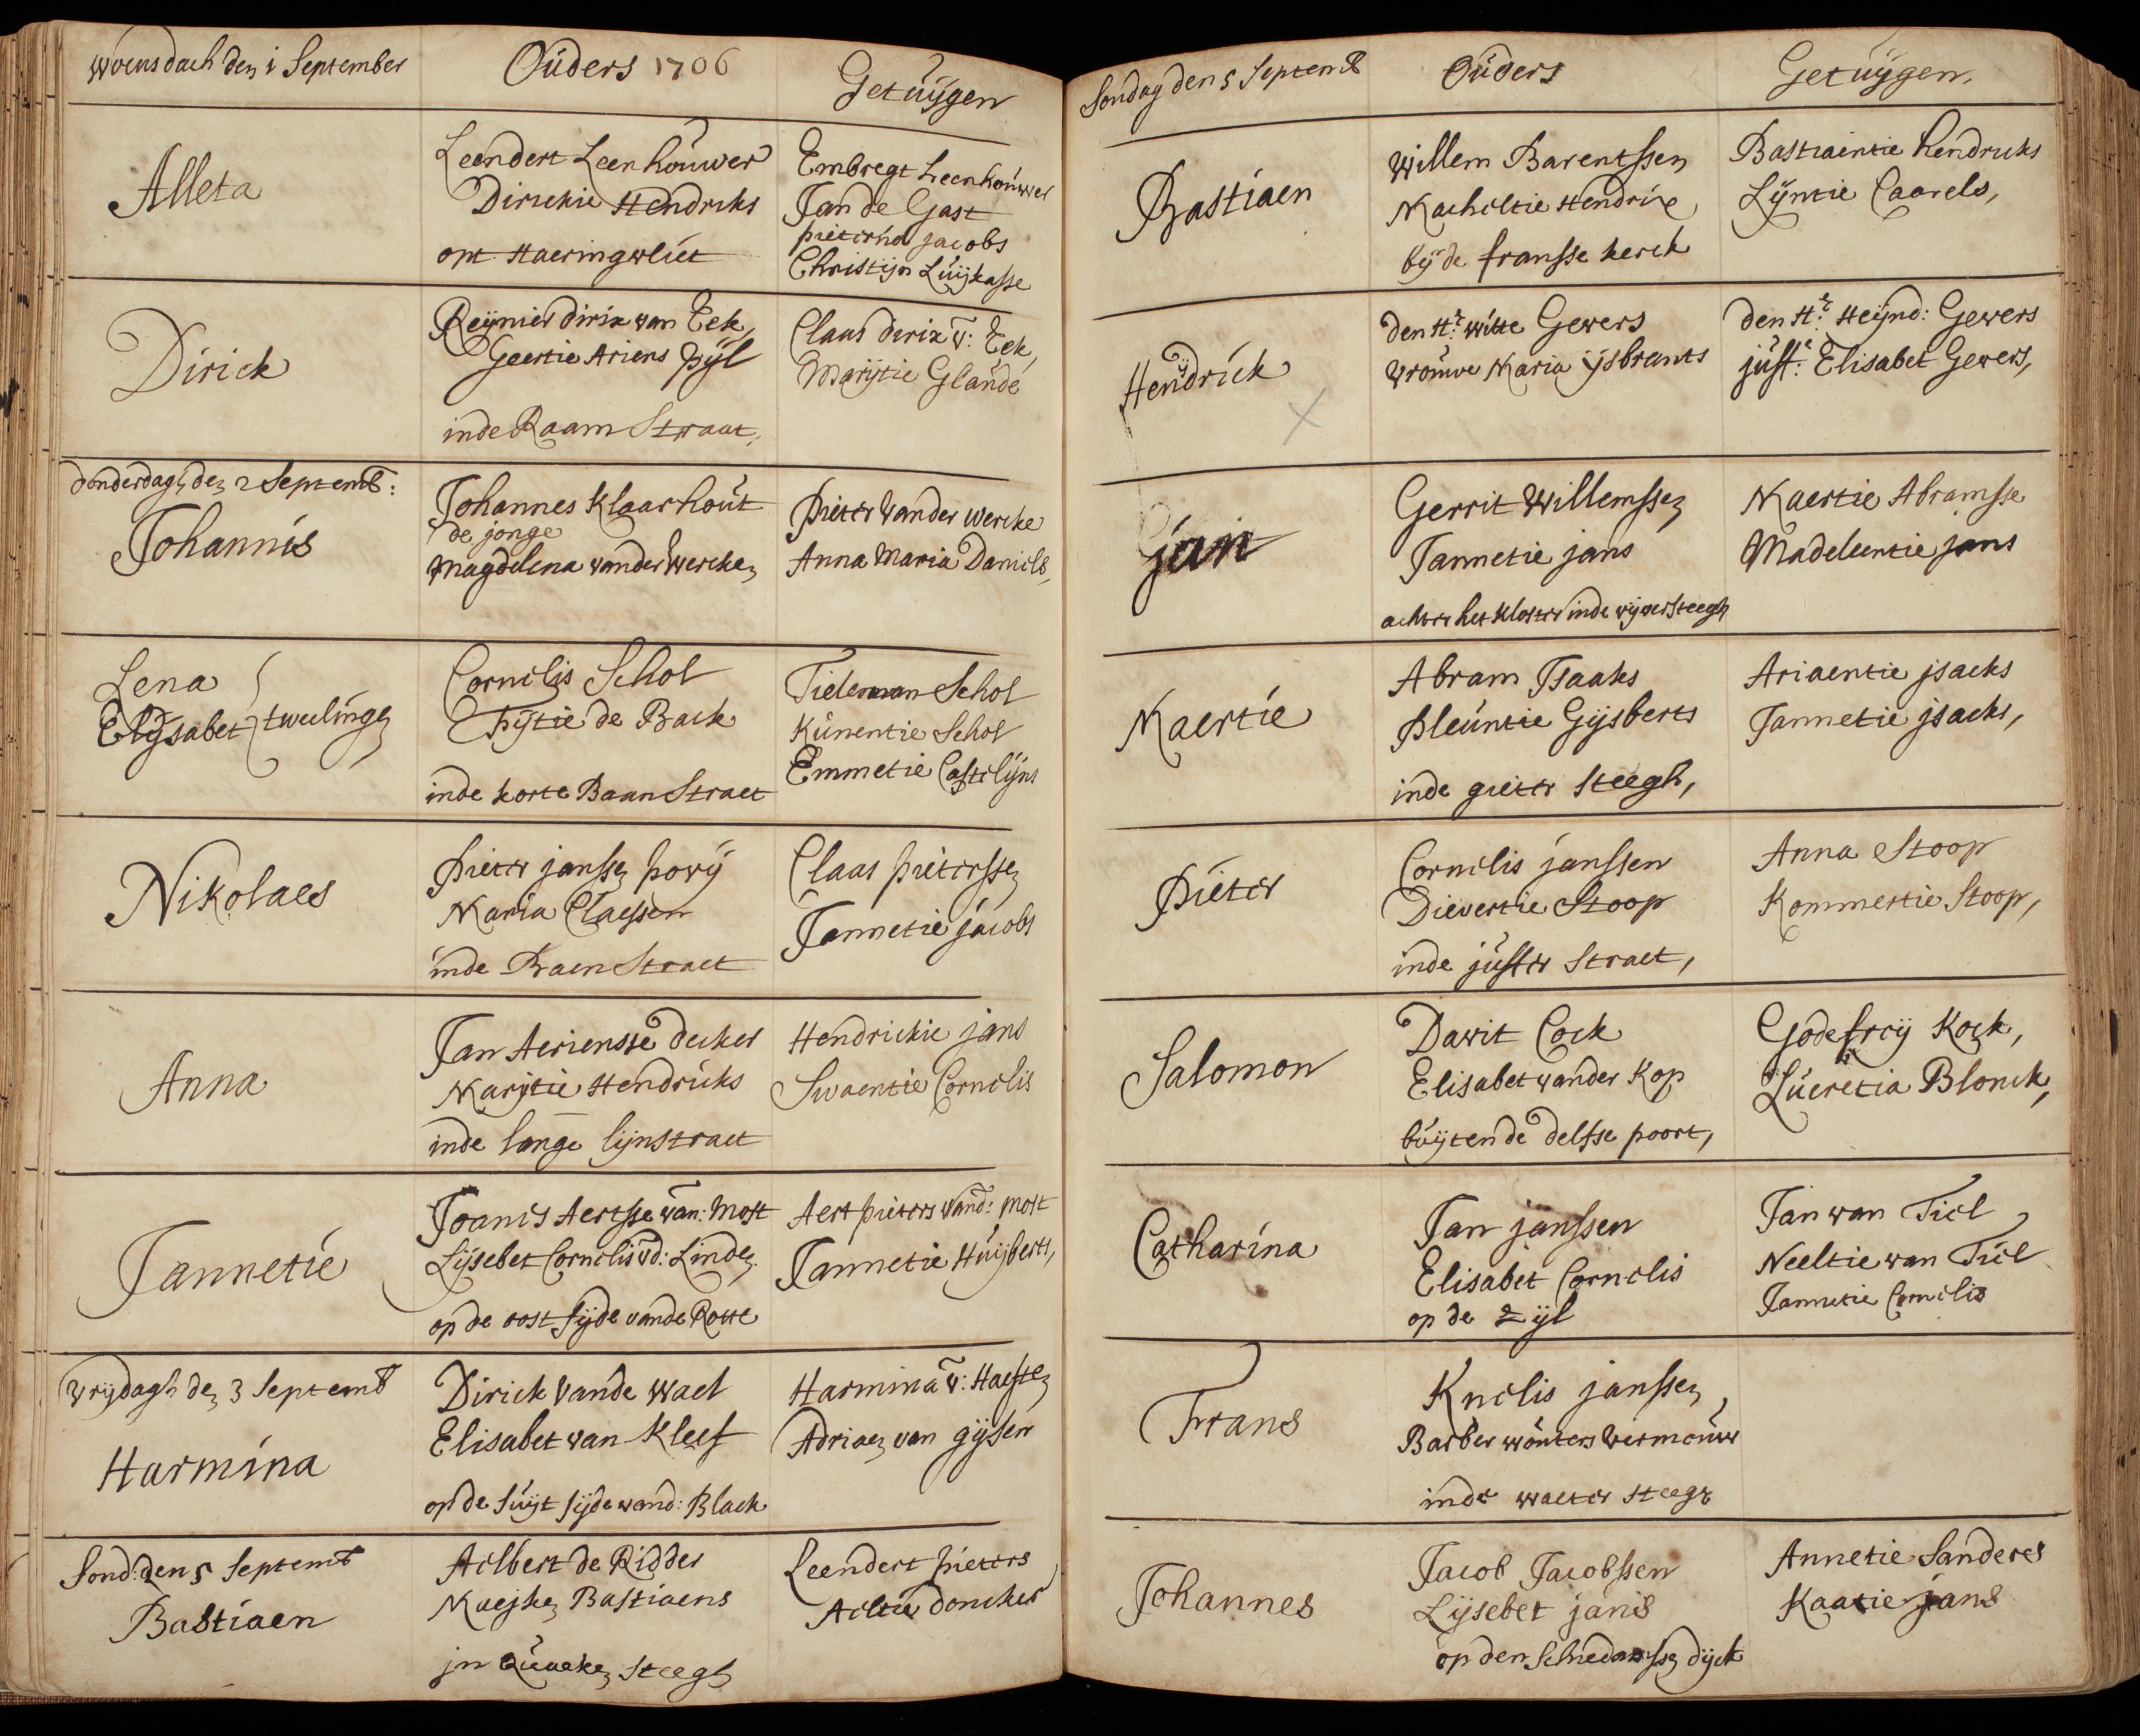 Woensdach den 1 September
Ouders 1706
Getuijgen
Alleta
Leendert Leenhouwer
Dirickie Hendriks
opt Haeringvliet
Embregt Leenhouwer
Jan de Gast
pieternel jacobs
Christijn Luijkasse
Dirick
Reijnier dirix van Eek,
Geertie Ariens pijl
inde Raam Straat,
Claas dirix v: Eek,
Marijtie Glaude
donderdagh den 2 Septemb:
Johannis
Johannes Klaarhout
de jonge
Magdelena vander Wercken
Pieter vander Wercke
Anna Maria Daniels,
Lena
Elijsabet tweelingen
Cornelis Schol
Thijtie de Back
inde korte Baan Straet
Tieleman Schol
Kunentie Schol
Emmetie Castelijns
Nikolaes
Pieter janssen
Maria Claessen
inde Baen Straet
Claas pieterssen
Jannetie jacobs
Anna
Jan Aeriensse decker
Marijtie Hendricks
inde lange lijnstraet
Hendrickie jans
Swaentie Cornelis
Jannetie
Joanis Aertsse van: Most
Lijsebet Cornelis vd: Linden.
op de oost sijde vande Rotte
Aert pieters vand: Most
Jannetie Huijberts,
Vrijdagh den 3 Septemb
Harmina
Dirick Vande Wael
Elisabet van Kleef
op de suijt sijde vand: Blaek
Harmina v: Haeften
Adriaen van gijsen
Sond: den 5 Septemb
Bastiaen
Aelbert de Ridder
Bastiaens
jn steegh
Leendert pieters
Aeltie donker
Sondag den 5 Septemb
Ouders
Getuijgen.
Bastiaen
Willem Barentssen
Macheltie Hendrixe
bij de fransse kerck
Bastiaentie hendricks
Lijntie Caarels,
Hendrick
den Hr: witte Gevers
Vrouwe Maria ijsbrants
den Hr: Heijnd: Gevers
juffe: Elisabet Gevers,
jan
Gerrit Willemssen
Jannetie jans
achter het Kloster inde vijversteegh
Maertie Abramsse
Madeleentie jans
Maertie
Abram Jsaaks
Pleuntie Gijsberts
inde gieter steegh,
Ariaentie jsacks
Jannetie jsacks,
Pieter
Cornelis janssen
Dievertie Stoop
inde juffer straet,
Anna Stoop
Kommertie Stoop,
Salomon
Davit Cock
Elisabet vander Kop
buijten de delfse poort,
Godefroij Kock,
Lucretia Blonck,
Catharina
Jan janssen
Elisabet Cornelis
op de zijl
Jan van Tiel
Neeltie van Tiel
Jannetie Cornelis
Frans
Knelis janssen,
Barber wouters Vermouw
inde waeter steegh
Johannes
Jacob Jacobssen
Lijsebet jans
op den Schiedamssen dijck
Annetie Sanders
Kaatie jans